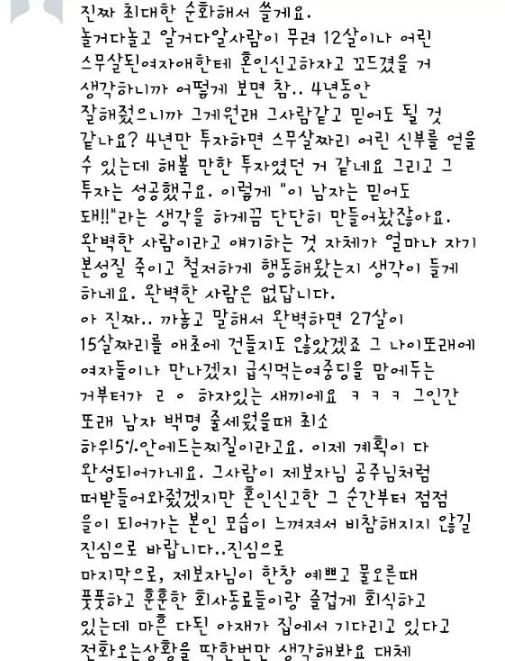 진짜 최대한 순화해서 쓸게요.
놀거다놀고 알거다알사람이 무려 12살이나 어린
스무살된여자애한테 혼인신고하자고 꼬드겼을 거
생각하니까 어떻게 보면 참.. 4년동안
잘해줬으니까 그게원래 그사람같고 믿어도 될 것
같나요? 4년만 투자하면 스무살짜리 어린 신부를 얻을
수 있는데 해볼 만한 투자였던 거 같네요 그리고 그
투자는 성공했구요. 이렇게 "이 남자는 믿어도
돼!!"라는 생각을 하게끔 단단히 만들어놨잖아요.
완벽한 사람이라고 얘기하는 것 자체가 얼마나 자기
본성질 죽이고 철저하게 행동해왔는지 생각이 들게
하네요. 완벽한 사람은 없답니다.
아 진짜.. 까놓고 말해서 완벽하면 27살이
15살짜리를 애초에 건들지도 않았겠죠 그 나이또래에
여자들이나 만나겠지 급식먹는여중딩을 맘에두는
거부터가 ㄹㅇ 하자있는 새끼에요 ㅋㅋㅋ 그인간
또래 남자 백명 줄세웠을때 최소
하위5%안에드는찌질이라고요. 이제 계획이 다
완성되어가네요. 그사람이 제보자님 공주님처럼
떠받들어와줬겠지만 혼인신고한 그 순간부터 점점
을이 되어가는 본인 모습이 느껴져서 비참해지지 않길
진심으로 바랍니다..진심으로
마지막으로, 제보자님이 한창 예쁘고 물오른때
풋풋하고 훈훈한 회사동료들이랑 즐겁게 회식하고
있는데 마흔 다된 아재가 집에서 기다리고 있다고
전화오는상황을 딱한번만 생각해봐요 대체